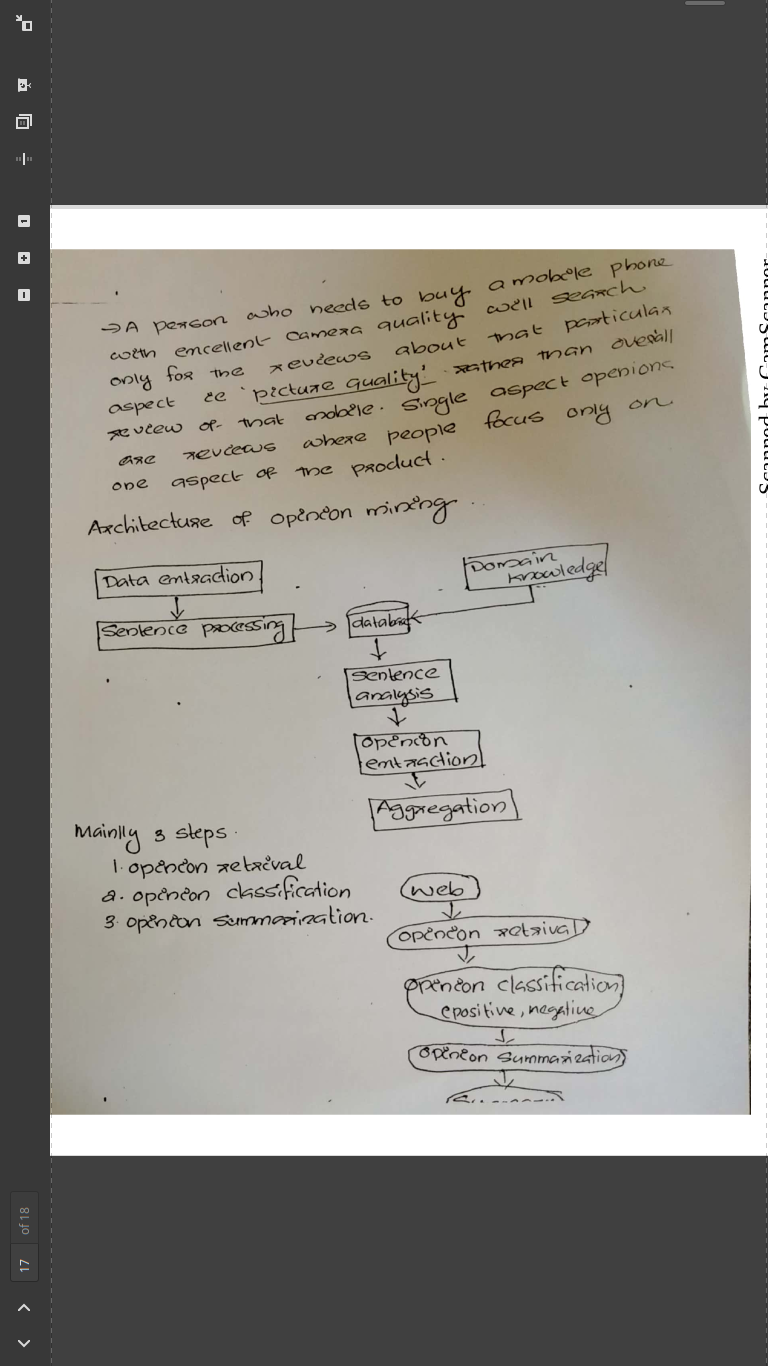 → A person who needs to buy a mobile phone
with encellent camera quality will search
only for the reviews about that particular
aspect ie 'picture quality' rather than overall
review of that mobile. Single aspect openions
are reviews where people focus only on
one aspect of the product.
Architecture of opinion mining.
Data entraction
Domain
knowledge
Sentence processing
database
Sentence
analysis
opinion
entraction
Aggregation
Mainlly 3 steps.
1. opinion retrival
2. opinion classification
3. opinion summarization.
web
opinion retrival
opinion classification
(positive, negative
opinion summarization
Scanned by CamScanner
17 of 18